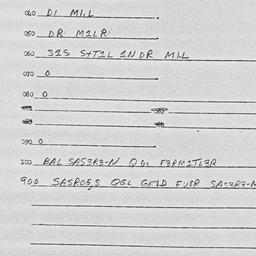 040 DI MIL
050 DR MILR
060 31S S+TIL INDR MIL
070 0
080 0
090 0
100 BAL SAS3R3-N QGL F3RMITL3R
900 SASRO5,S QGL GFID FUSR SAS3R3-N